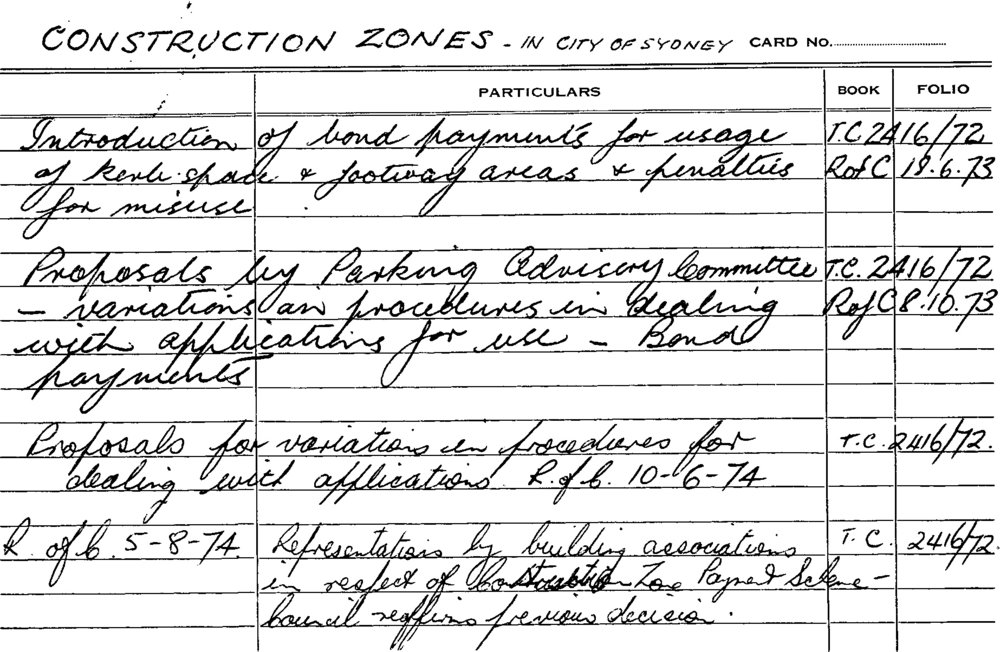 CONSTRUCTION ZONES - IN CITY OF SYDNEY CARD No.
PARTICULARS BOOK FOLIO
Introduction of bond payments for usage T.C. 2416/72
of kerb space & footway areas & penalties R of C 18.6.73
for misuse
Proposals by Parking Advisory Committee T.C. 2416/72
- variations in procedures in dealing R of C 8.10.73
with applications for use - Bond
payments
Proposals for variations in procedures for T.C. 2416/72.
dealing with applications. R. of C. 10-6-74
R. of C. 5-8-74. Representations by building associations T.C. 2416/72.
in respect of Construction Zone Payment Scheme -
Council reaffirms previous decision.